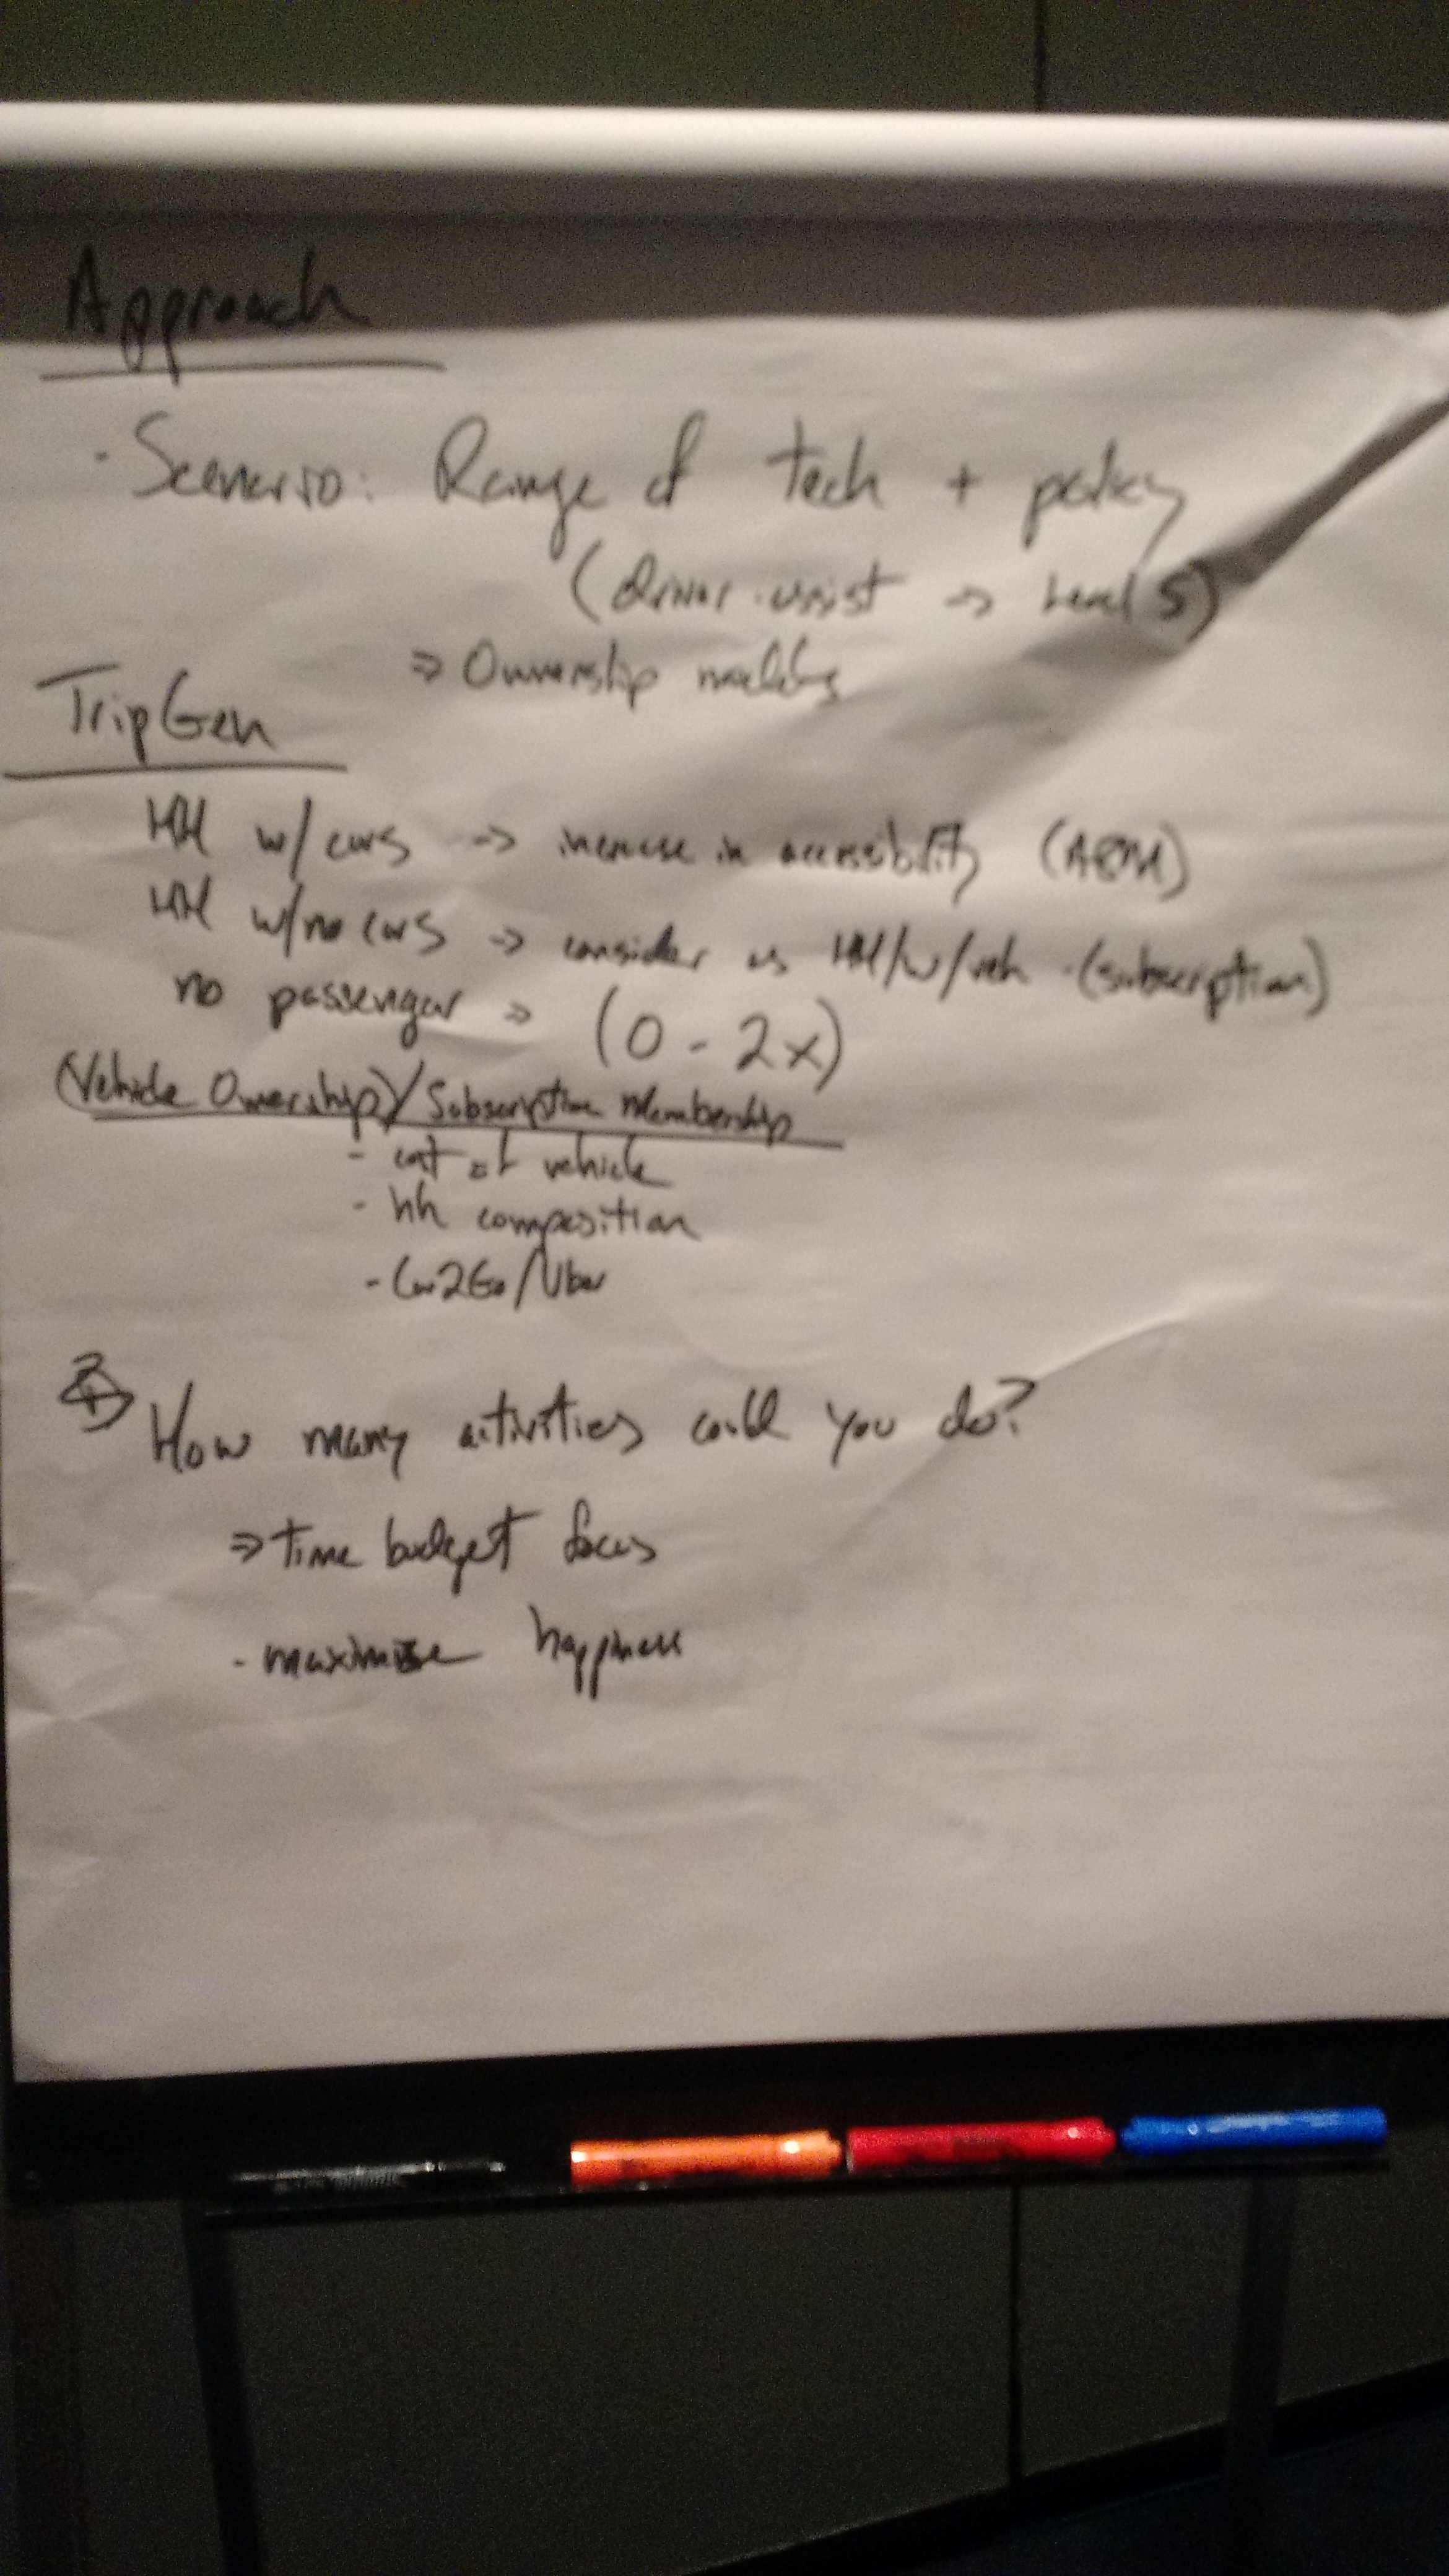 Approach
· Scenario: Range of tech + policy
(driver assist → Level 5)
⇒ Ownership
TripGen
HH w/ cars → increase in accessibility (ABM)
HH w/no cars → consider as HH/w/veh (subscription)
no passenger ⇒ (0 - 2x)
(Vehicle Ownership)/Subscription Membership
- of vehicle
- hh composition
- Car2Go/Uber
How many activities could you do?
⇒ time budget focus
- maximize happiness